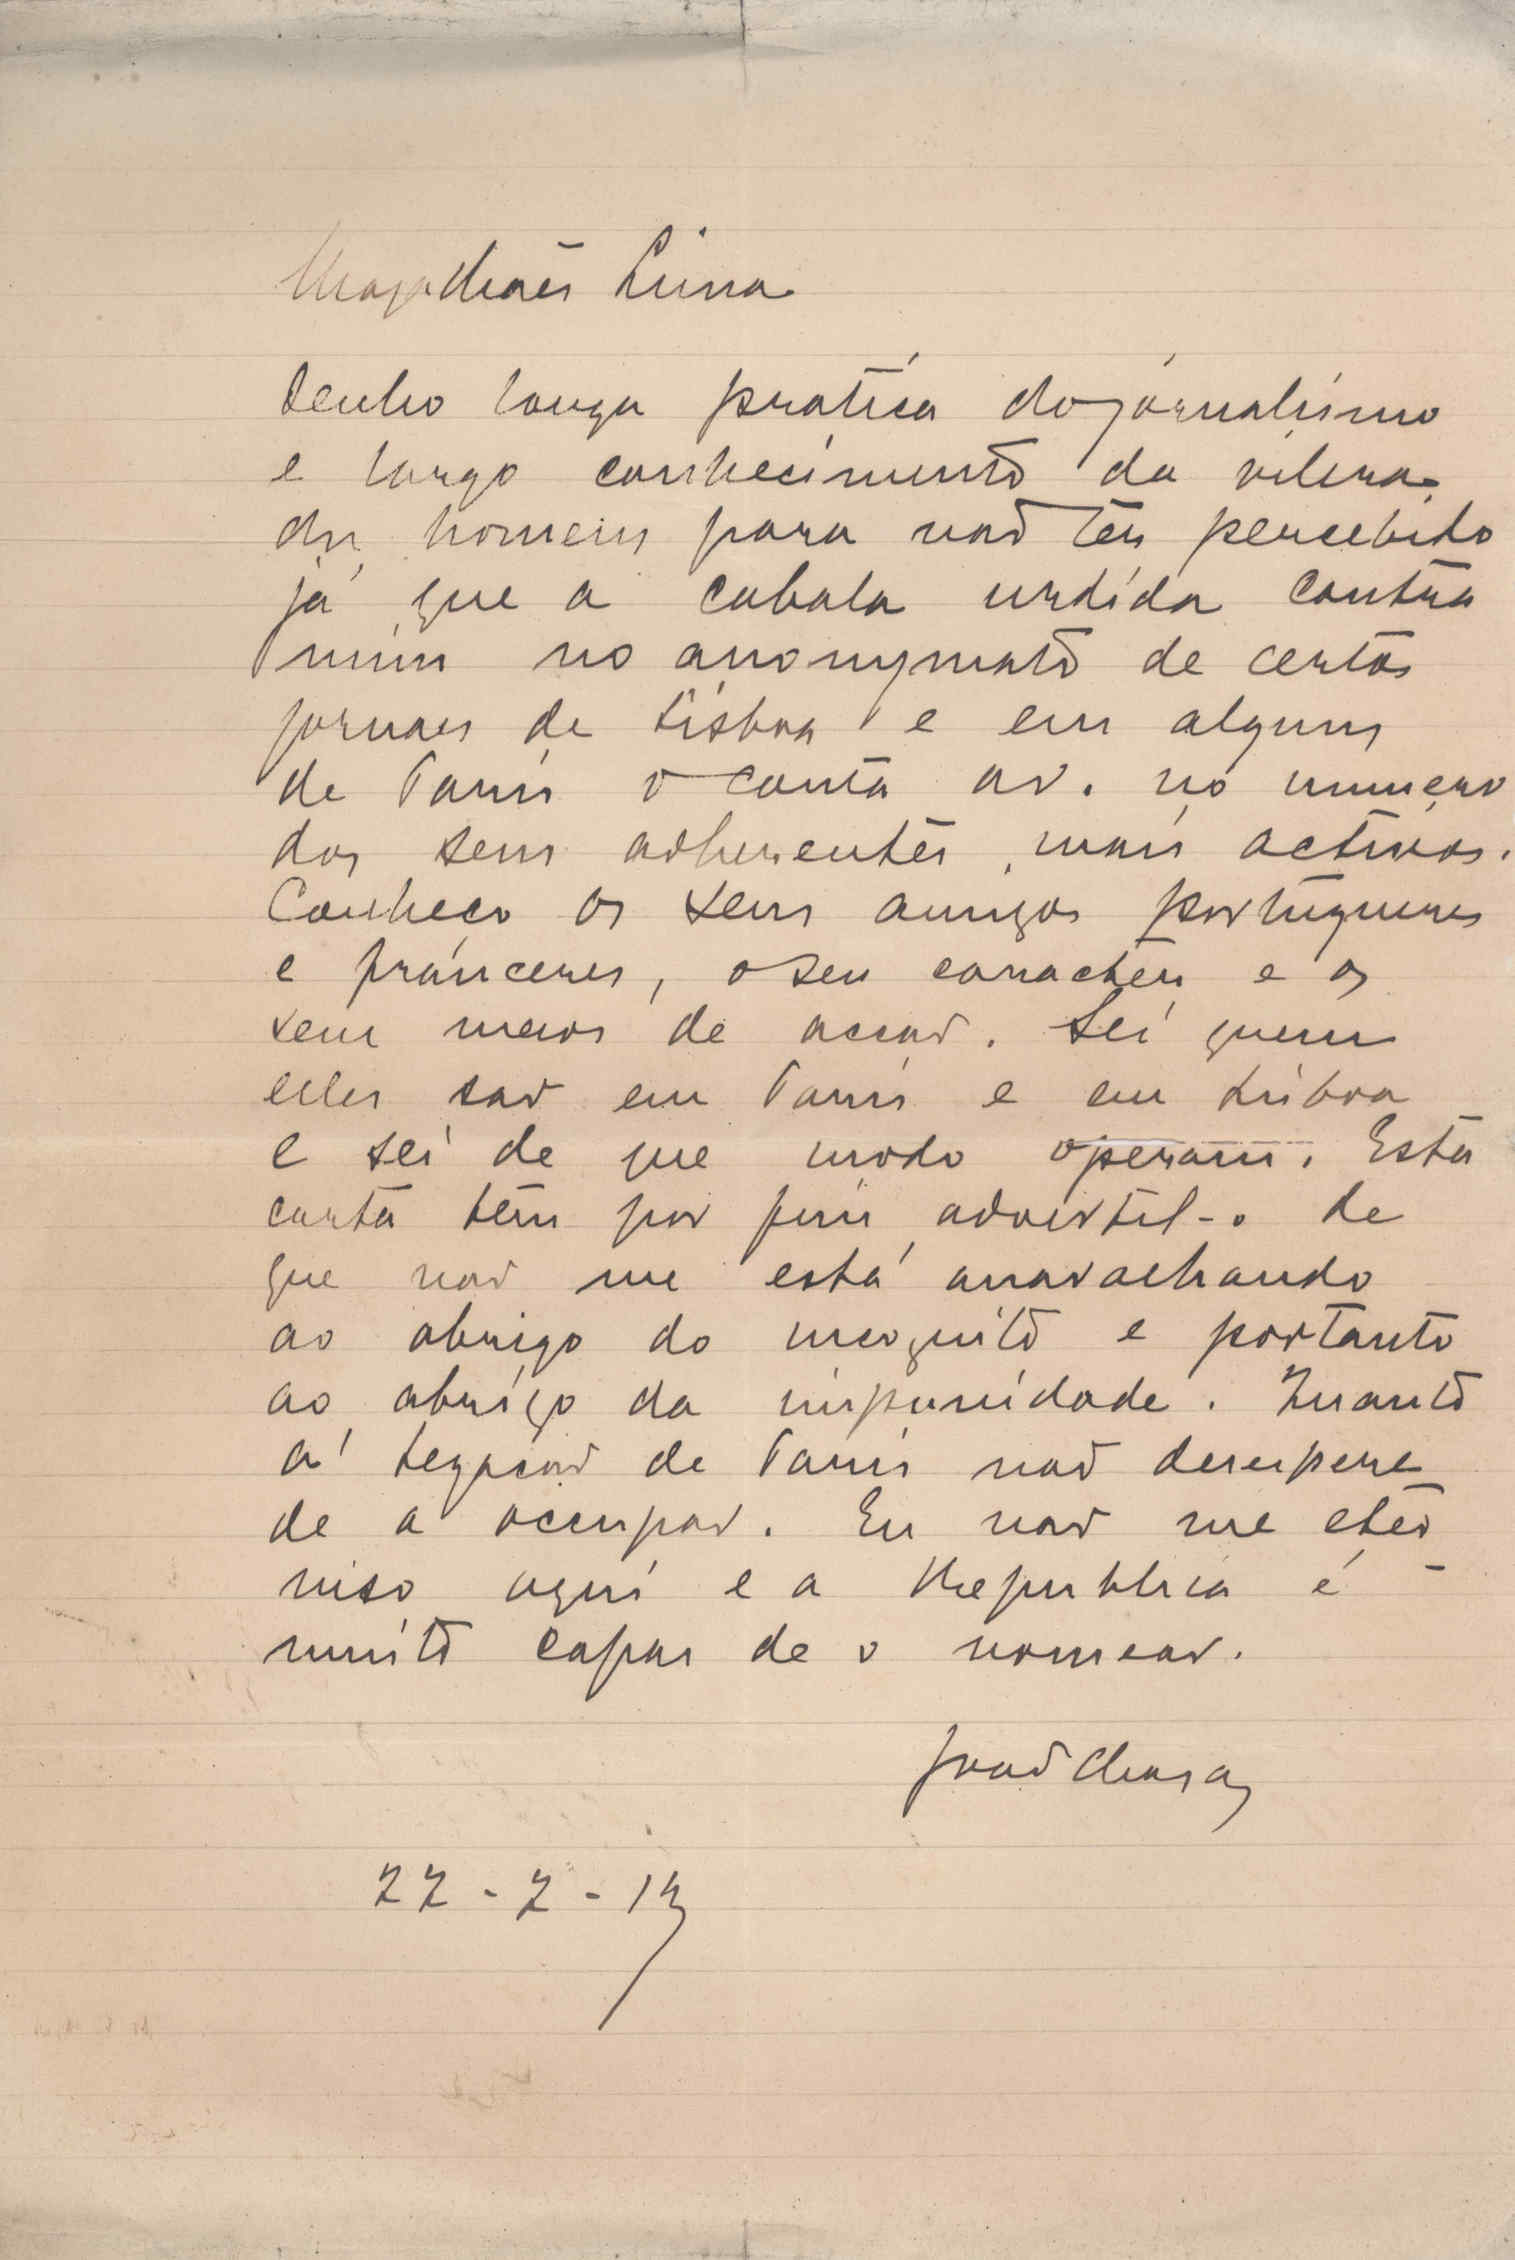 Magalhães Lima
Tenho longa pratica do jornalismo
e largo conhecimento da vileza
dos homens para não ter percebido
já que a cabala urdida contra
mim no anonymato de certos
jornaes de Lisboa e em alguns
de Paris o conta a v. no numero
dos seus adherentes mais activos.
Conheço os seus amigos portuguezes
e francezes, o seu caracter e os
seus meios de acção. Sei quem
elles são em Paris e em Lisboa
e sei de que modo operam. Esta
carta tem por fim advertil-o de
que não me está
ao abrigo do incognito e portanto
ao abrigo da impunidade. Quanto
á Legação de Paris não desespere
de a occupar. Eu não me eter
niso aqui e a Republica é
muito capas de o nomear.
João Chagas
22-2-13